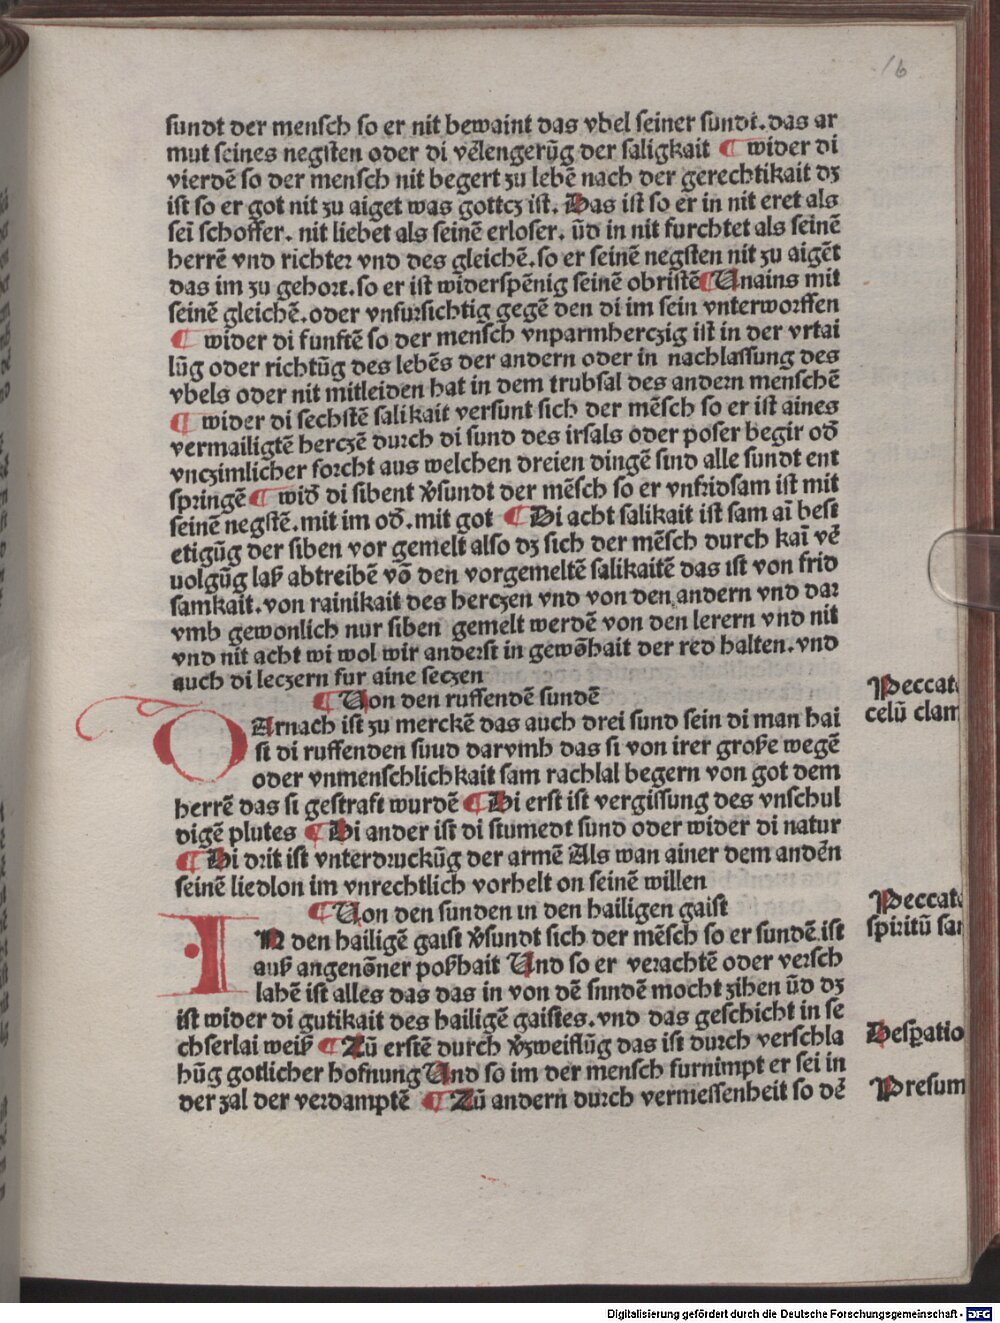 16
sundt der mensch so er nit bewaint das vbel seiner sundt. das ar
mut seines negsten oder di vẽlengerũg der saligkait ¶ wider di
vierdẽ so der mensch nit begert zu lebẽ nach der gerechtikait dz
ist so er got nit zu aiget was gottcz ist. Das ist so er in nit eret als
sei schoffer. nit liebet als seinẽ erloser. ũd in nit furchtet als seinẽ
herrẽ vnd richter vnd des gleichẽ. so er seinẽ negsten nit zu aigẽt
das im zu gehort. so er ist widerspẽnig seinẽ obristẽ ¶ Vnains mit
seinẽ gleichẽ. oder vnfursichtig gegẽ den di im sein vnterworffen
¶ wider di funftẽ so der mensch vnparmherczig ist in der vrtai
lũg oder richtũg des lebẽs der andern oder in nachlassung des
vbels oder nit mitleiden hat in dem trubsal des andern menschẽ
¶ wider di sechstẽ salikait versunt sich der mẽsch so er ist aines
vermailigtẽ herczẽ durch di sund des irsals oder poser begir od̃
vnczimlicher forcht aus welchen dreien dingẽ sind alle sundt ent
springẽ ¶ wid̃ di sibent v̾sundt der mẽsch so er vnfridsam ist mit
seinẽ negstẽ. mit im od̃. mit got ¶ Di acht salikait ist sam aĩ best
etigũg der siben vor gemelt also dz sich der mẽsch durch kaĩ vẽ
uolgũg laß abtreibẽ võ den vorgemeltẽ salikaitẽ das ist von frid
samkait. von rainikait des herczen vnd von den andern vnd dar
vmb gewonlich nur siben gemelt werdẽ von den lerern vnd nit
vnd nit acht wi wol wir anderst in gewõhait der red halten. vnd
auch di leczern fur aine seczen
¶ Von den ruffendẽ sundẽ
DArnach ist zu merckẽ das auch drei sund sein di man hai
st di ruffenden suud darvmb das si von irer große wegẽ
oder vnmenschlichkait sam rachsal begern von got dem
herrẽ das si gestraft wurdẽ ¶ Di erst ist vergissung des vnschul
digẽ plutes ¶ Di ander ist di stumedt sund oder wider di natur
¶ Di drit ist vnterdruckũg der armẽ Als wan ainer dem andẽn
seinẽ liedlon im vnrechtlich vorhelt on seinẽ willen
¶ Von den sunden in den hailigen gaist
IN den hailigẽ gaist v̾sundt sich der mẽsch so er sundẽ ist
auß angenõner poßhait Vnd so er verachtẽ oder versch
lahẽ ist alles das das in von dẽ snndẽ mocht zihen ũd dz
ist wider di gutikait des hailigẽ gaistes. vnd das geschicht in se
chserlai weiß ¶ Zũ erstẽ durch v̾zweiflũg das ist durch verschla
hũg gotlicher hofnung Vnd so im der mensch furnimpt er sei in
der zal der verdamptẽ ¶ Zũ andern durch vermessenheit so dẽ
Peccat
celũ clam
Peccat
spiritũ san
Desp̱atio
Presum
Digitalisierung gefördert durch die Deutsche Forschungsgemeinschaft - DFG